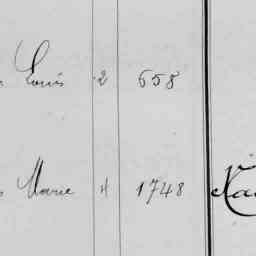 Louis 2 658
Marie 4 1748